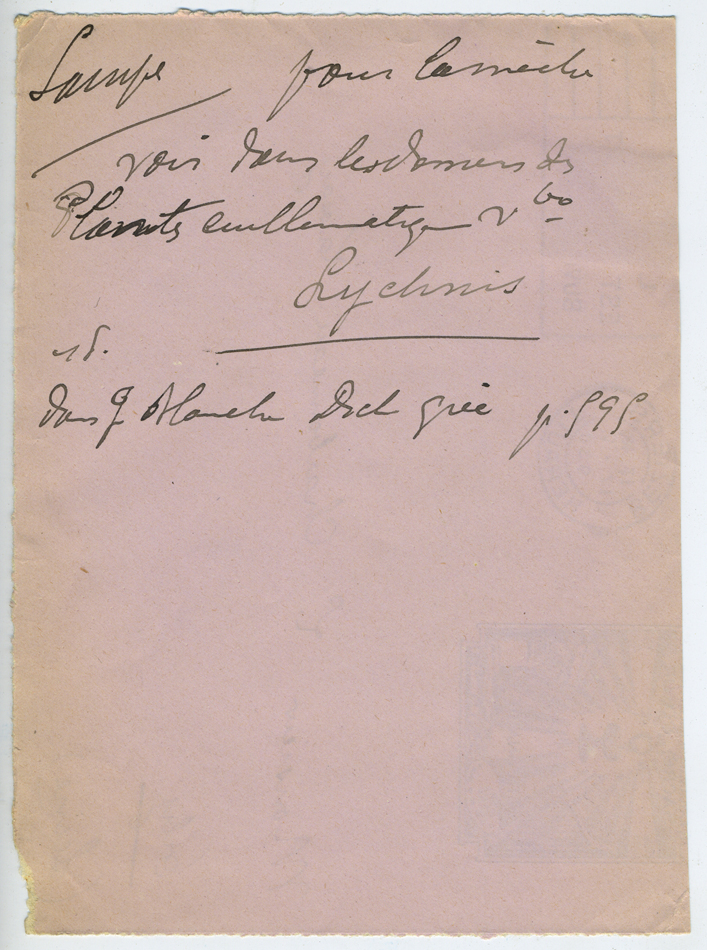 Lampe pour la mèche
voir dans les dossiers des
Plantes emblematiques v bo
Lychnis
id.
dans Planche Dict grec p. 595